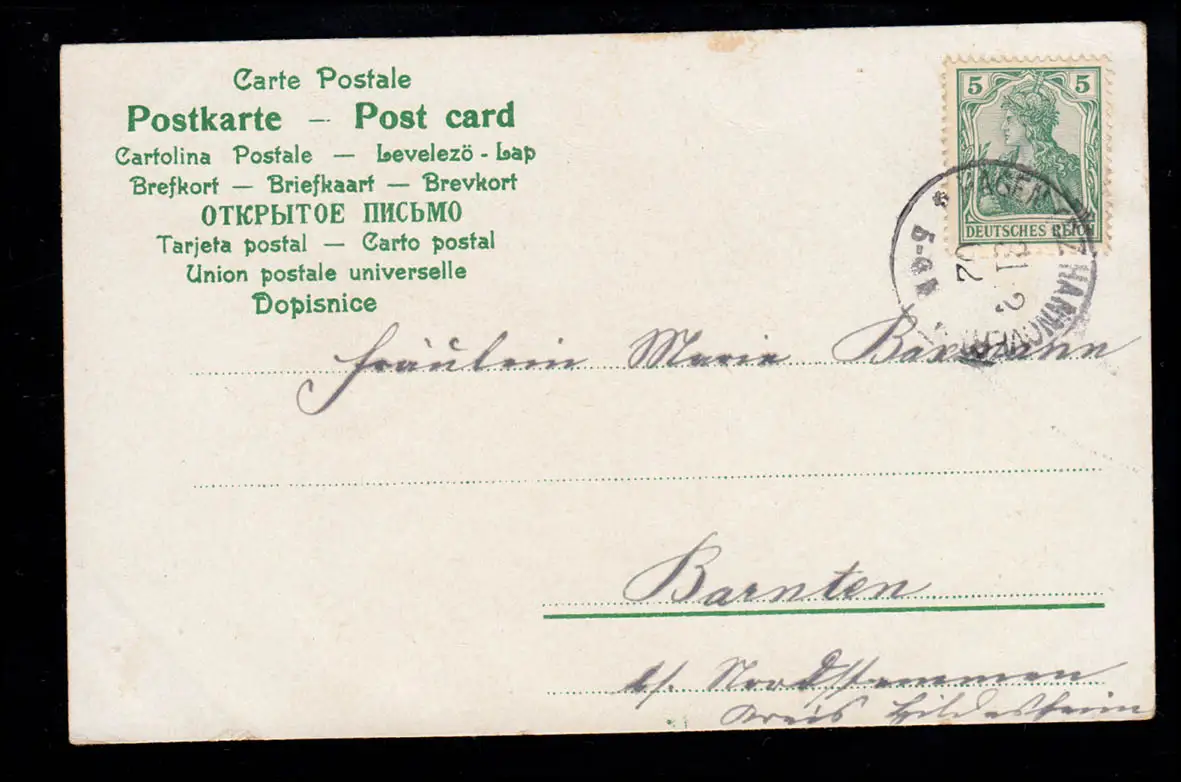 Carte Postale
Postkarte — Post card
Cartolina Postale — Levelezö - Lap
Brefkort — Briefkaart — Brevkort
ОТКРЫТОЕ ПИСЬМО
Tarjeta postal — Carto postal
Union postale universelle
Dopisnice
5 5
DEUTSCHES REICH
HANNOVER
Fräulein Maria
Barnten
b/. Nordstemmen
Kreis Hildesheim